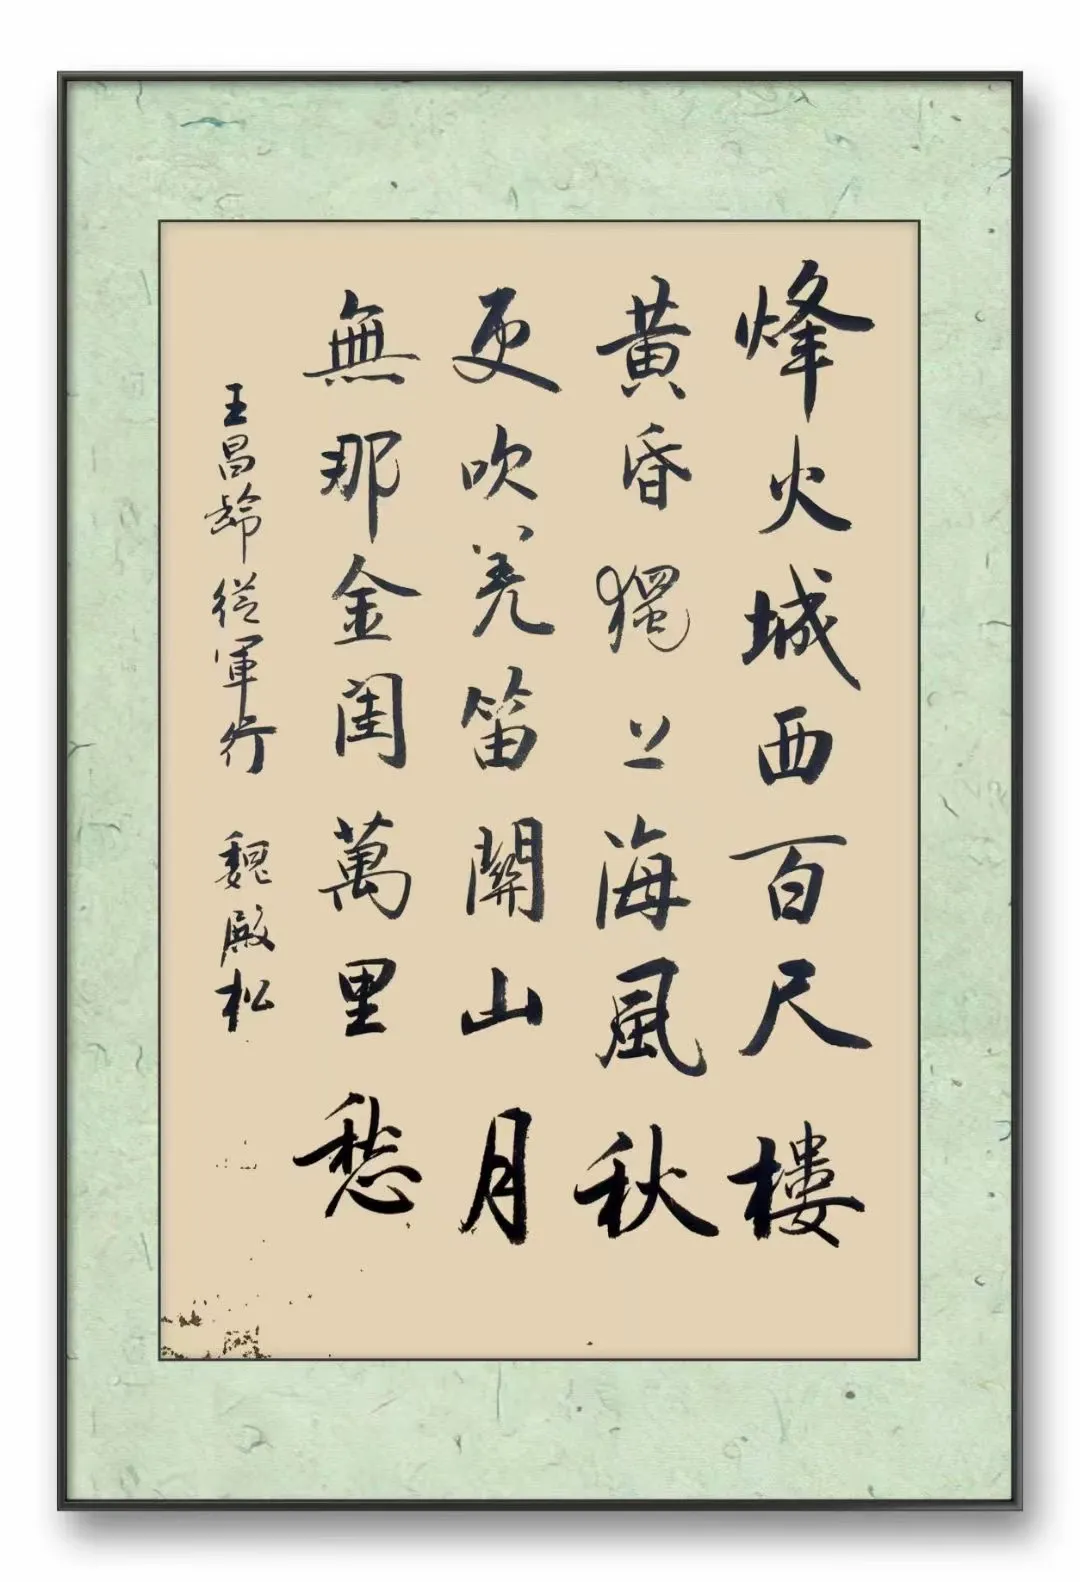 烽火城西百尺樓
黃昏獨上海風秋
更吹羌笛關山月
無那金閨萬里愁
王昌齡從軍行 魏殿松